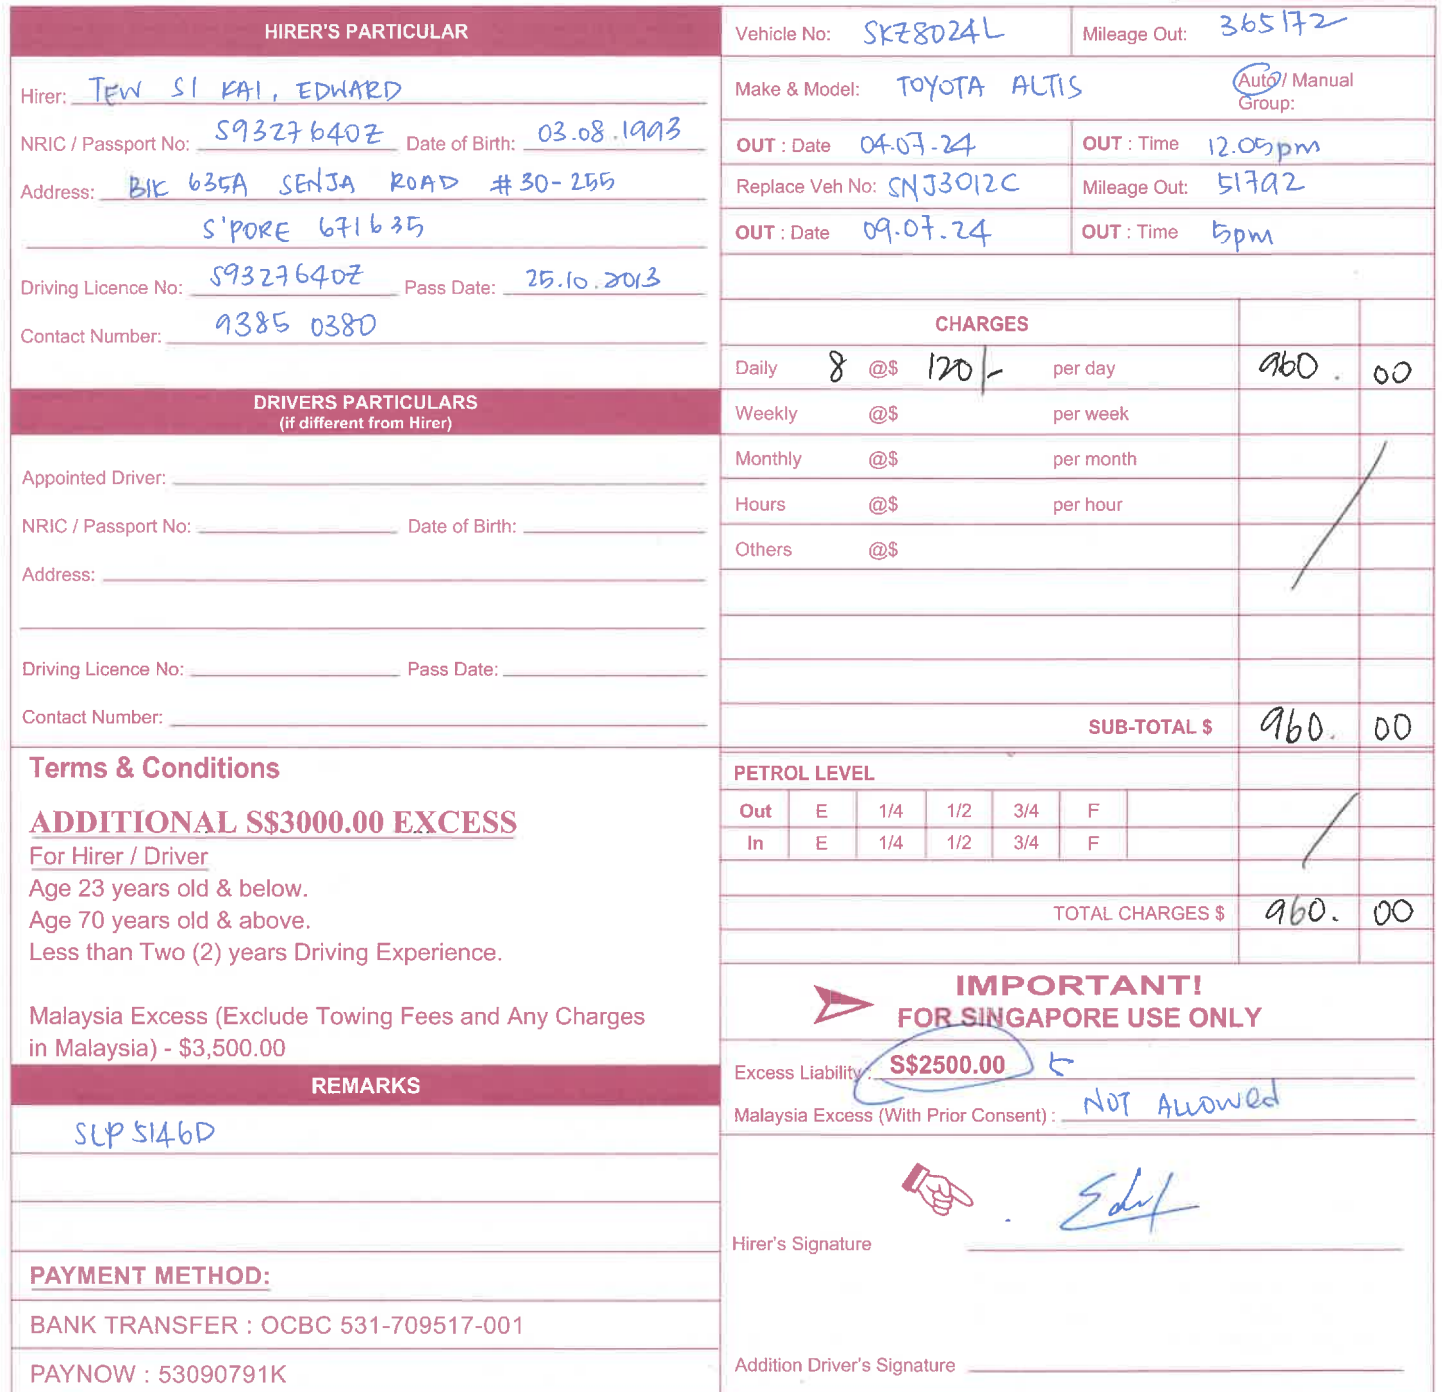 HIRER'S PARTICULAR
Hirer: TEW SI KAI, EDWARD
NRIC / Passport No: S9327640Z Date of Birth: 03.08.1993
Address: Blk 635A SENJA ROAD #30-255
S'PORE 671635
Driving Licence No: S9327640Z Pass Date: 25.10.2013
Contact Number: 9385 0380
DRIVERS PARTICULARS
(if different from Hirer)
Appointed Driver:
NRIC / Passport No: Date of Birth:
Address:
Driving Licence No: Pass Date:
Contact Number:
Terms & Conditions
ADDITIONAL S$3000.00 EXCESS
For Hirer / Driver
Age 23 years old & below.
Age 70 years old & above.
Less than Two (2) years Driving Experience.
Malaysia Excess (Exclude Towing Fees and Any Charges
in Malaysia) - $3,500.00
REMARKS
SLP5146D
PAYMENT METHOD:
BANK TRANSFER : OCBC 531-709517-001
PAYNOW : 53090791K
Vehicle No: SKZ8024L Mileage Out: 365172
Make & Model: TOYOTA ALTIS Auto / Manual
Group:
OUT : Date 04.07.24 OUT : Time 12.05pm
Replace Veh No: SNJ3012C Mileage Out: 51792
OUT : Date 09.07.24 OUT : Time 5pm
CHARGES
Daily 8 @$ 120/- per day 960. 00
Weekly @$ per week
Monthly @$ per month
Hours @$ per hour
Others @$
SUB-TOTAL $ 960. 00
PETROL LEVEL
Out E 1/4 1/2 3/4 F
In E 1/4 1/2 3/4 F
TOTAL CHARGES $ 960. 00
IMPORTANT!
FOR SINGAPORE USE ONLY
Excess Liability : S$2500.00
Malaysia Excess (With Prior Consent) : NOT ALLOWED
Hirer's Signature
Addition Driver's Signature